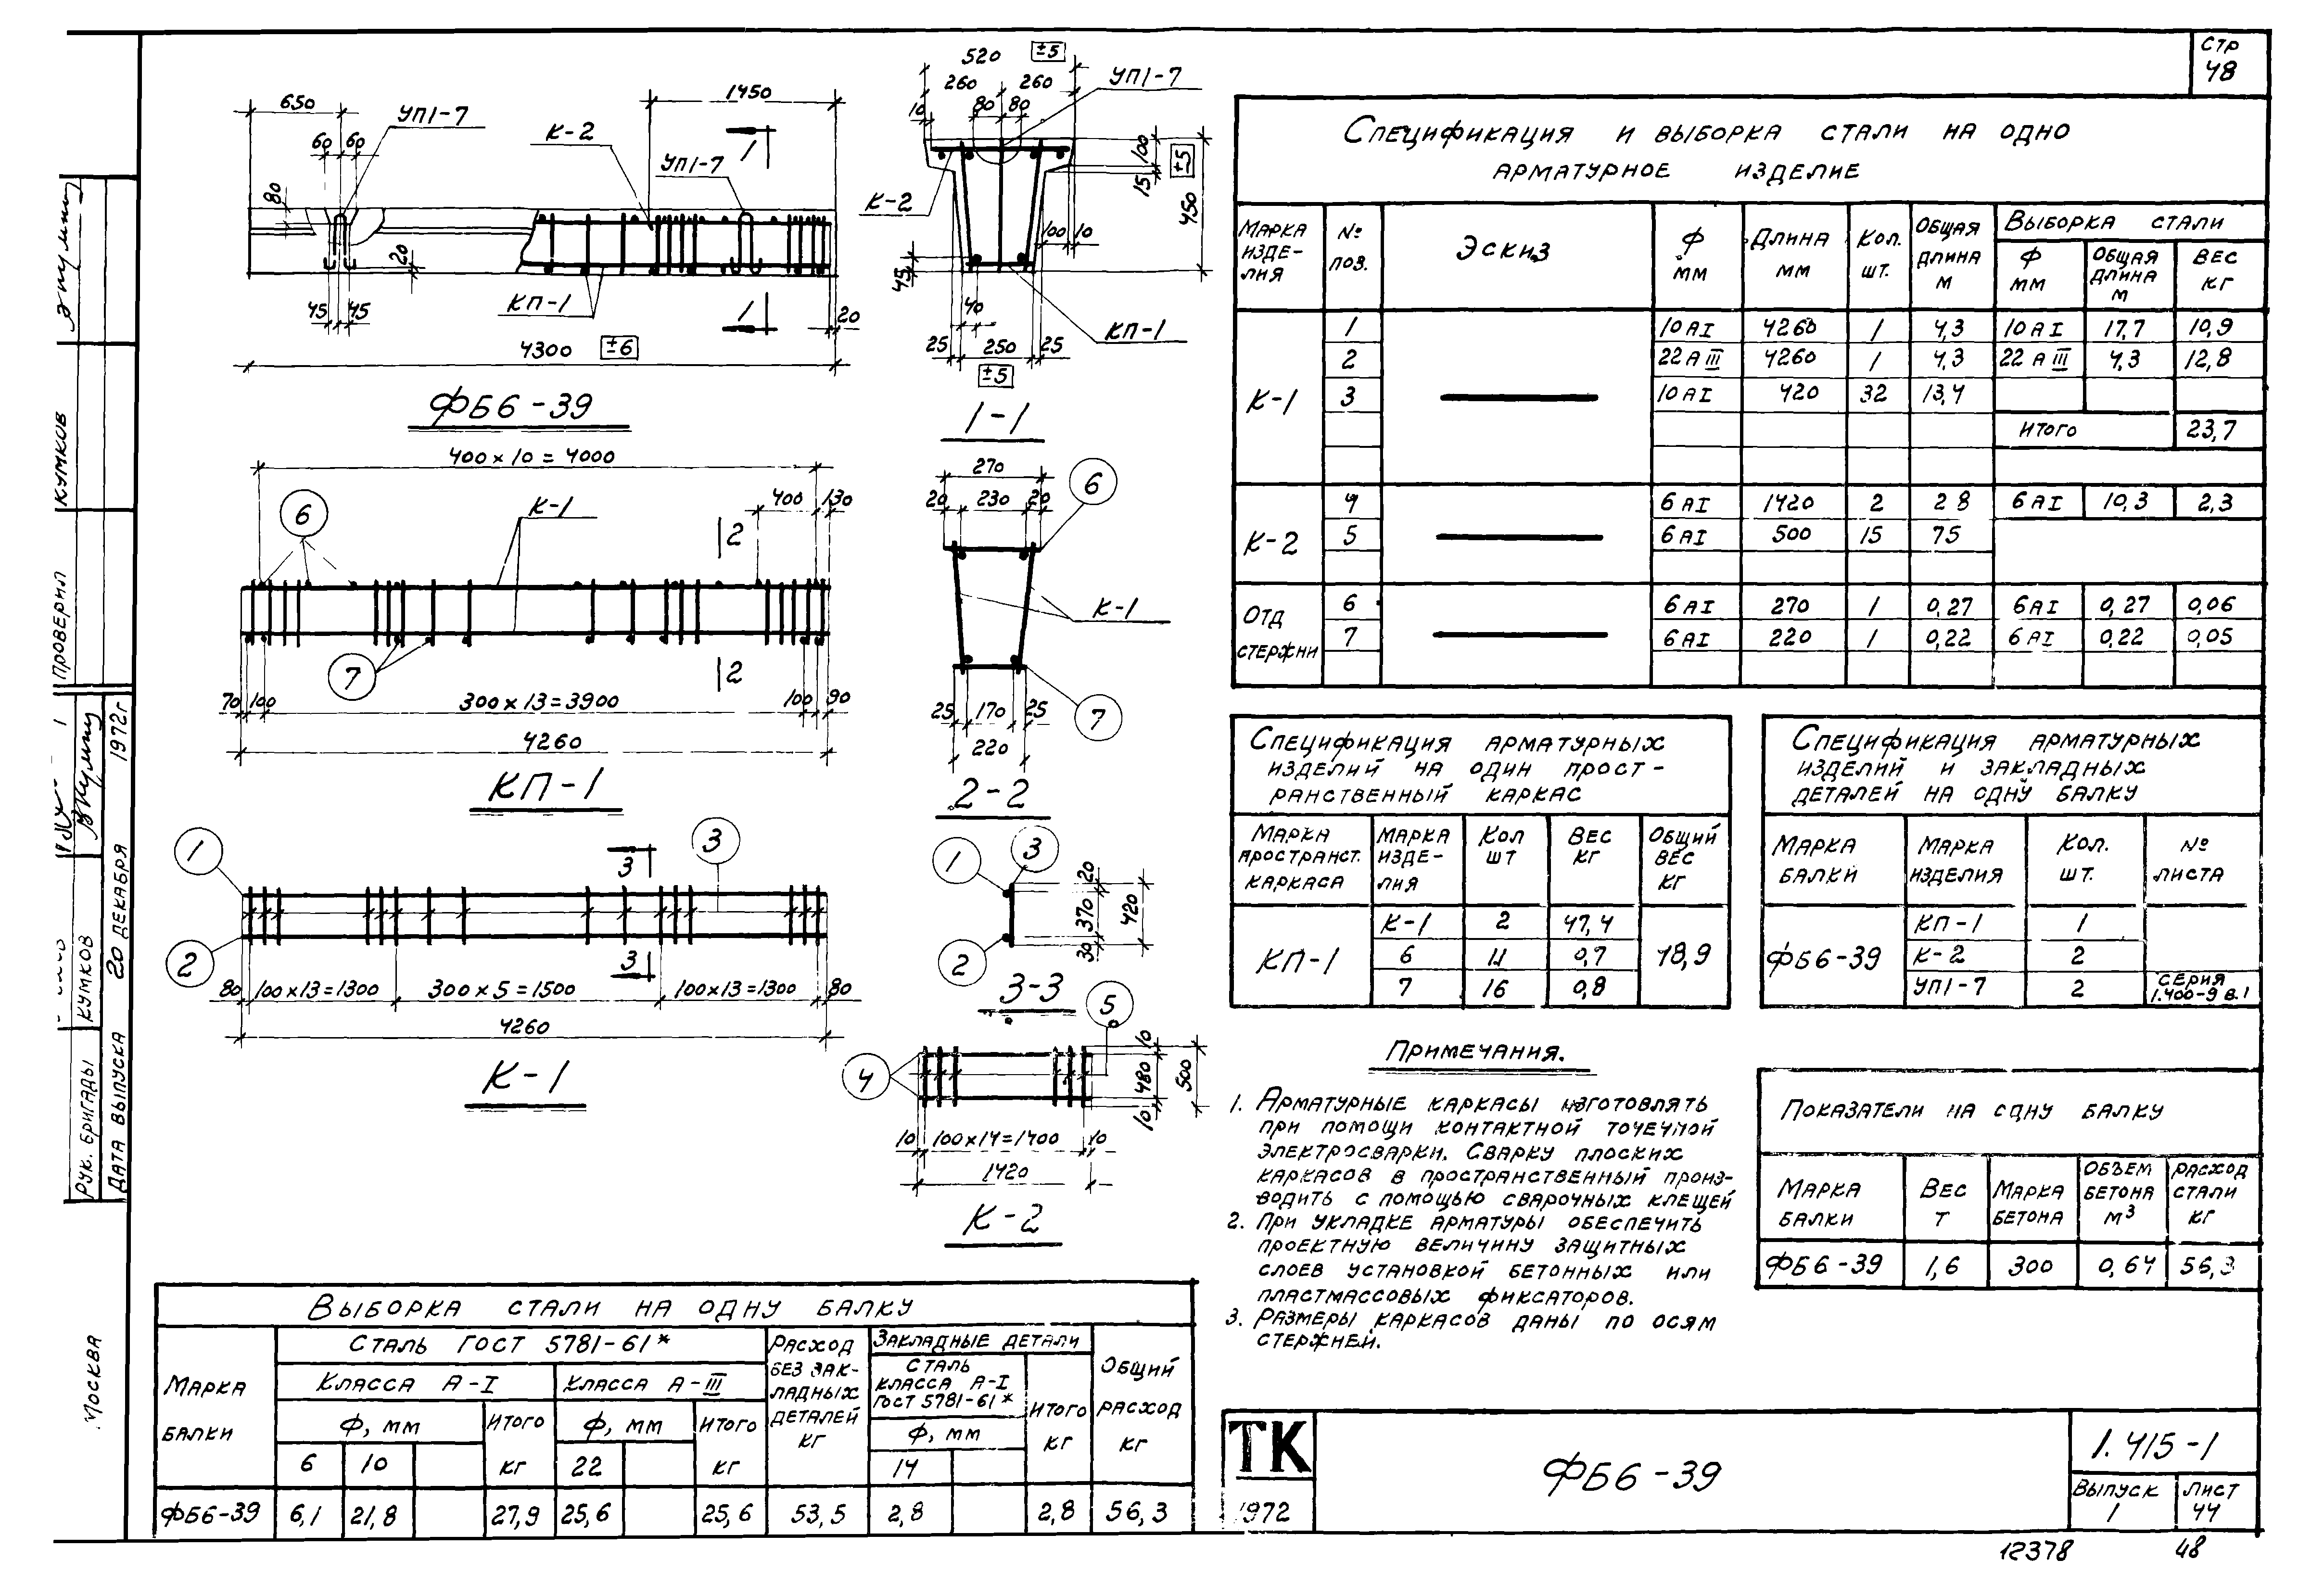 СТР
48
650
УП1-7
60
60
К-2
1450
1
УП1-7
80
20
КП-1
45
45
1
20
4300
±6
ФБ6-39
520
±5
260
260
УП1-7
10
80
80
100
±5
15
450
К-2
100
10
45
40
КП-1
25
250
25
±5
1-1
400×10=4000
6
К-1
400
130
2
7
2
70
100
300×13=3900
100
90
4260
КП-1
270
20
230
20
6
К-1
25
170
25
7
220
2-2
1
3
3
2
3
80
100×13=1300
300×5=1500
100×13=1300
80
4260
К-1
1
3
20
370
420
30
2
3-3
5
4
10
480
500
10
10
100×14=1400
10
1420
К-2
СПЕЦИФИКАЦИЯ И ВЫБОРКА СТАЛИ НА ОДНО
АРМАТУРНОЕ ИЗДЕЛИЕ
МАРКА ИЗДЕ-ЛИЯ
№ ПОЗ.
ЭСКИЗ
Ф ММ
ДЛИНА ММ
КОЛ. ШТ.
ОБЩАЯ ДЛИНА М
ВЫБОРКА СТАЛИ
Ф ММ
ОБЩАЯ ДЛИНА М
ВЕС КГ
К-1
1 10АI 4260 1 4,3 10АI 17,7 10,9
2 22АIII 4260 1 4,3 22АIII 4,3 12,8
3 10АI 420 32 13,4
ИТОГО 23,7
К-2
4 6АI 1420 2 2 8 6АI 10,3 2,3
5 6АI 500 15 75
ОТД СТЕРЖНИ
6 6АI 270 1 0,27 6АI 0,27 0,06
7 6АI 220 1 0,22 6АI 0,22 0,05
СПЕЦИФИКАЦИЯ АРМАТУРНЫХ
ИЗДЕЛИЙ НА ОДИН ПРОСТ-
РАНСТВЕННЫЙ КАРКАС
МАРКА ПРОСТРАНСТ. КАРКАСА
МАРКА ИЗДЕ-ЛИЯ
КОЛ ШТ
ВЕС КГ
ОБЩИЙ ВЕС КГ
КП-1
К-1 2 47,4
6 11 0,7
7 16 0,8
48,9
СПЕЦИФИКАЦИЯ АРМАТУРНЫХ
ИЗДЕЛИЙ И ЗАКЛАДНЫХ
ДЕТАЛЕЙ НА ОДНУ БАЛКУ
МАРКА БАЛКИ
МАРКА ИЗДЕЛИЯ
КОЛ. ШТ.
№ ЛИСТА
ФБ6-39
КП-1 1
К-2 2
УП1-7 2 СЕРИЯ 1.400-9 В.1
ПРИМЕЧАНИЯ.
1. АРМАТУРНЫЕ КАРКАСЫ ИЗГОТОВЛЯТЬ
ПРИ ПОМОЩИ КОНТАКТНОЙ ТОЧЕЧНОЙ
ЭЛЕКТРОСВАРКИ. СВАРКУ ПЛОСКИХ
КАРКАСОВ В ПРОСТРАНСТВЕННЫЙ ПРОИЗ-
ВОДИТЬ С ПОМОЩЬЮ СВАРОЧНЫХ КЛЕЩЕЙ
2. ПРИ УКЛАДКЕ АРМАТУРЫ ОБЕСПЕЧИТЬ
ПРОЕКТНУЮ ВЕЛИЧИНУ ЗАЩИТНЫХ
СЛОЕВ УСТАНОВКОЙ БЕТОННЫХ ИЛИ
ПЛАСТМАССОВЫХ ФИКСАТОРОВ.
3. РАЗМЕРЫ КАРКАСОВ ДАНЫ ПО ОСЯМ
СТЕРЖНЕЙ.
ПОКАЗАТЕЛИ НА ОДНУ БАЛКУ
МАРКА БАЛКИ
ВЕС Т
МАРКА БЕТОНА
ОБЪЕМ БЕТОНА М³
РАСХОД СТАЛИ КГ
ФБ6-39 1,6 300 0,64 56,3
ВЫБОРКА СТАЛИ НА ОДНУ БАЛКУ
МАРКА БАЛКИ
СТАЛЬ ГОСТ 5781-61*
КЛАССА А-I
КЛАССА А-III
Ф, ММ
ИТОГО КГ
Ф, ММ
ИТОГО КГ
6
10
22
РАСХОД БЕЗ ЗАК-ЛАДНЫХ ДЕТАЛЕЙ КГ
ЗАКЛАДНЫЕ ДЕТАЛИ
СТАЛЬ КЛАССА А-I ГОСТ 5781-61*
Ф, ММ
14
ИТОГО КГ
ОБЩИЙ РАСХОД КГ
ФБ6-39 6,1 21,8 27,9 25,6 25,6 53,5 2,8 2,8 56,3
ТК
1972
ФБ6-39
1.415-1
ВЫПУСК
1
ЛИСТ
44
12378
48
КУМКОВ
ПРОВЕРИЛ
РУК. БРИГАДЫ
КУМКОВ
ДАТА ВЫПУСКА 20 ДЕКАБРЯ 1972г
МОСКВА